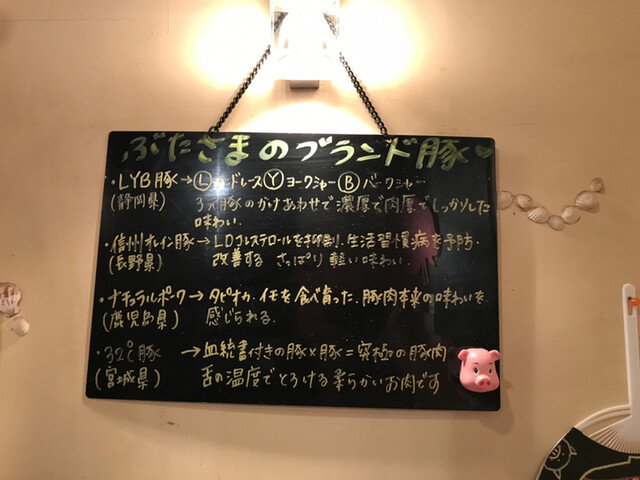 ぶたさまのブランド豚
・LYB豚→Ⓛランドレース Ⓨヨークシャー Ⓑバークシャー
(静岡県) 3元豚のかけあわせで濃厚で肉厚でしっかりした
味わい.
・信州オレイン豚→LDコレステロールを抑制、生活習慣病を予防.
(長野県) 改善する さっぱり軽い味わい.
・ナチュラルポーク→タピオカ、イモを食べ育った、豚肉本来の味わいを
(鹿児島県) 感じられる.
・32℃豚 →血統書付きの豚×豚=究極の豚肉
(宮城県) 舌の温度でとろける柔らかいお肉です